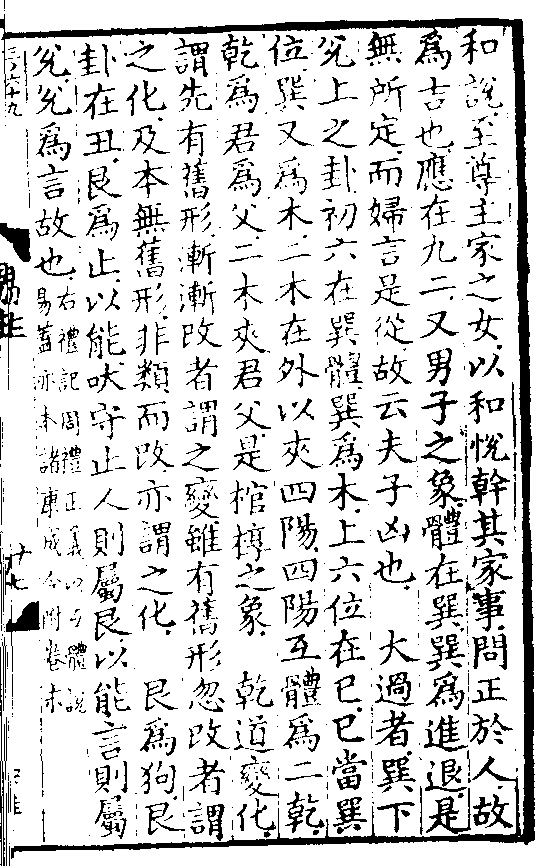 和說至尊主家之女以和悅幹其家事問正於人故
為吉也應在九二又男子之象體在巽巽為進退是
無所定而婦言是從故云夫子凶也　大過者巽下
兌上之卦初六在巽體巽為木上六位在巳巳當巽
位巽又為木二木在外以夾四陽四陽互體為二乾
乾為君為父二木夾君父是棺椁之象　乾道變化
謂先有舊形漸漸改者謂之變雖有舊形忽改者謂
之化及本無舊形非類而改亦謂之化　艮為狗艮
卦在丑艮為止以能吠守止人則屬艮以能言則屬
兌兌為言故也
右禮記周禮正義以互體說
易蓋亦本諸康成今附卷末
廿七